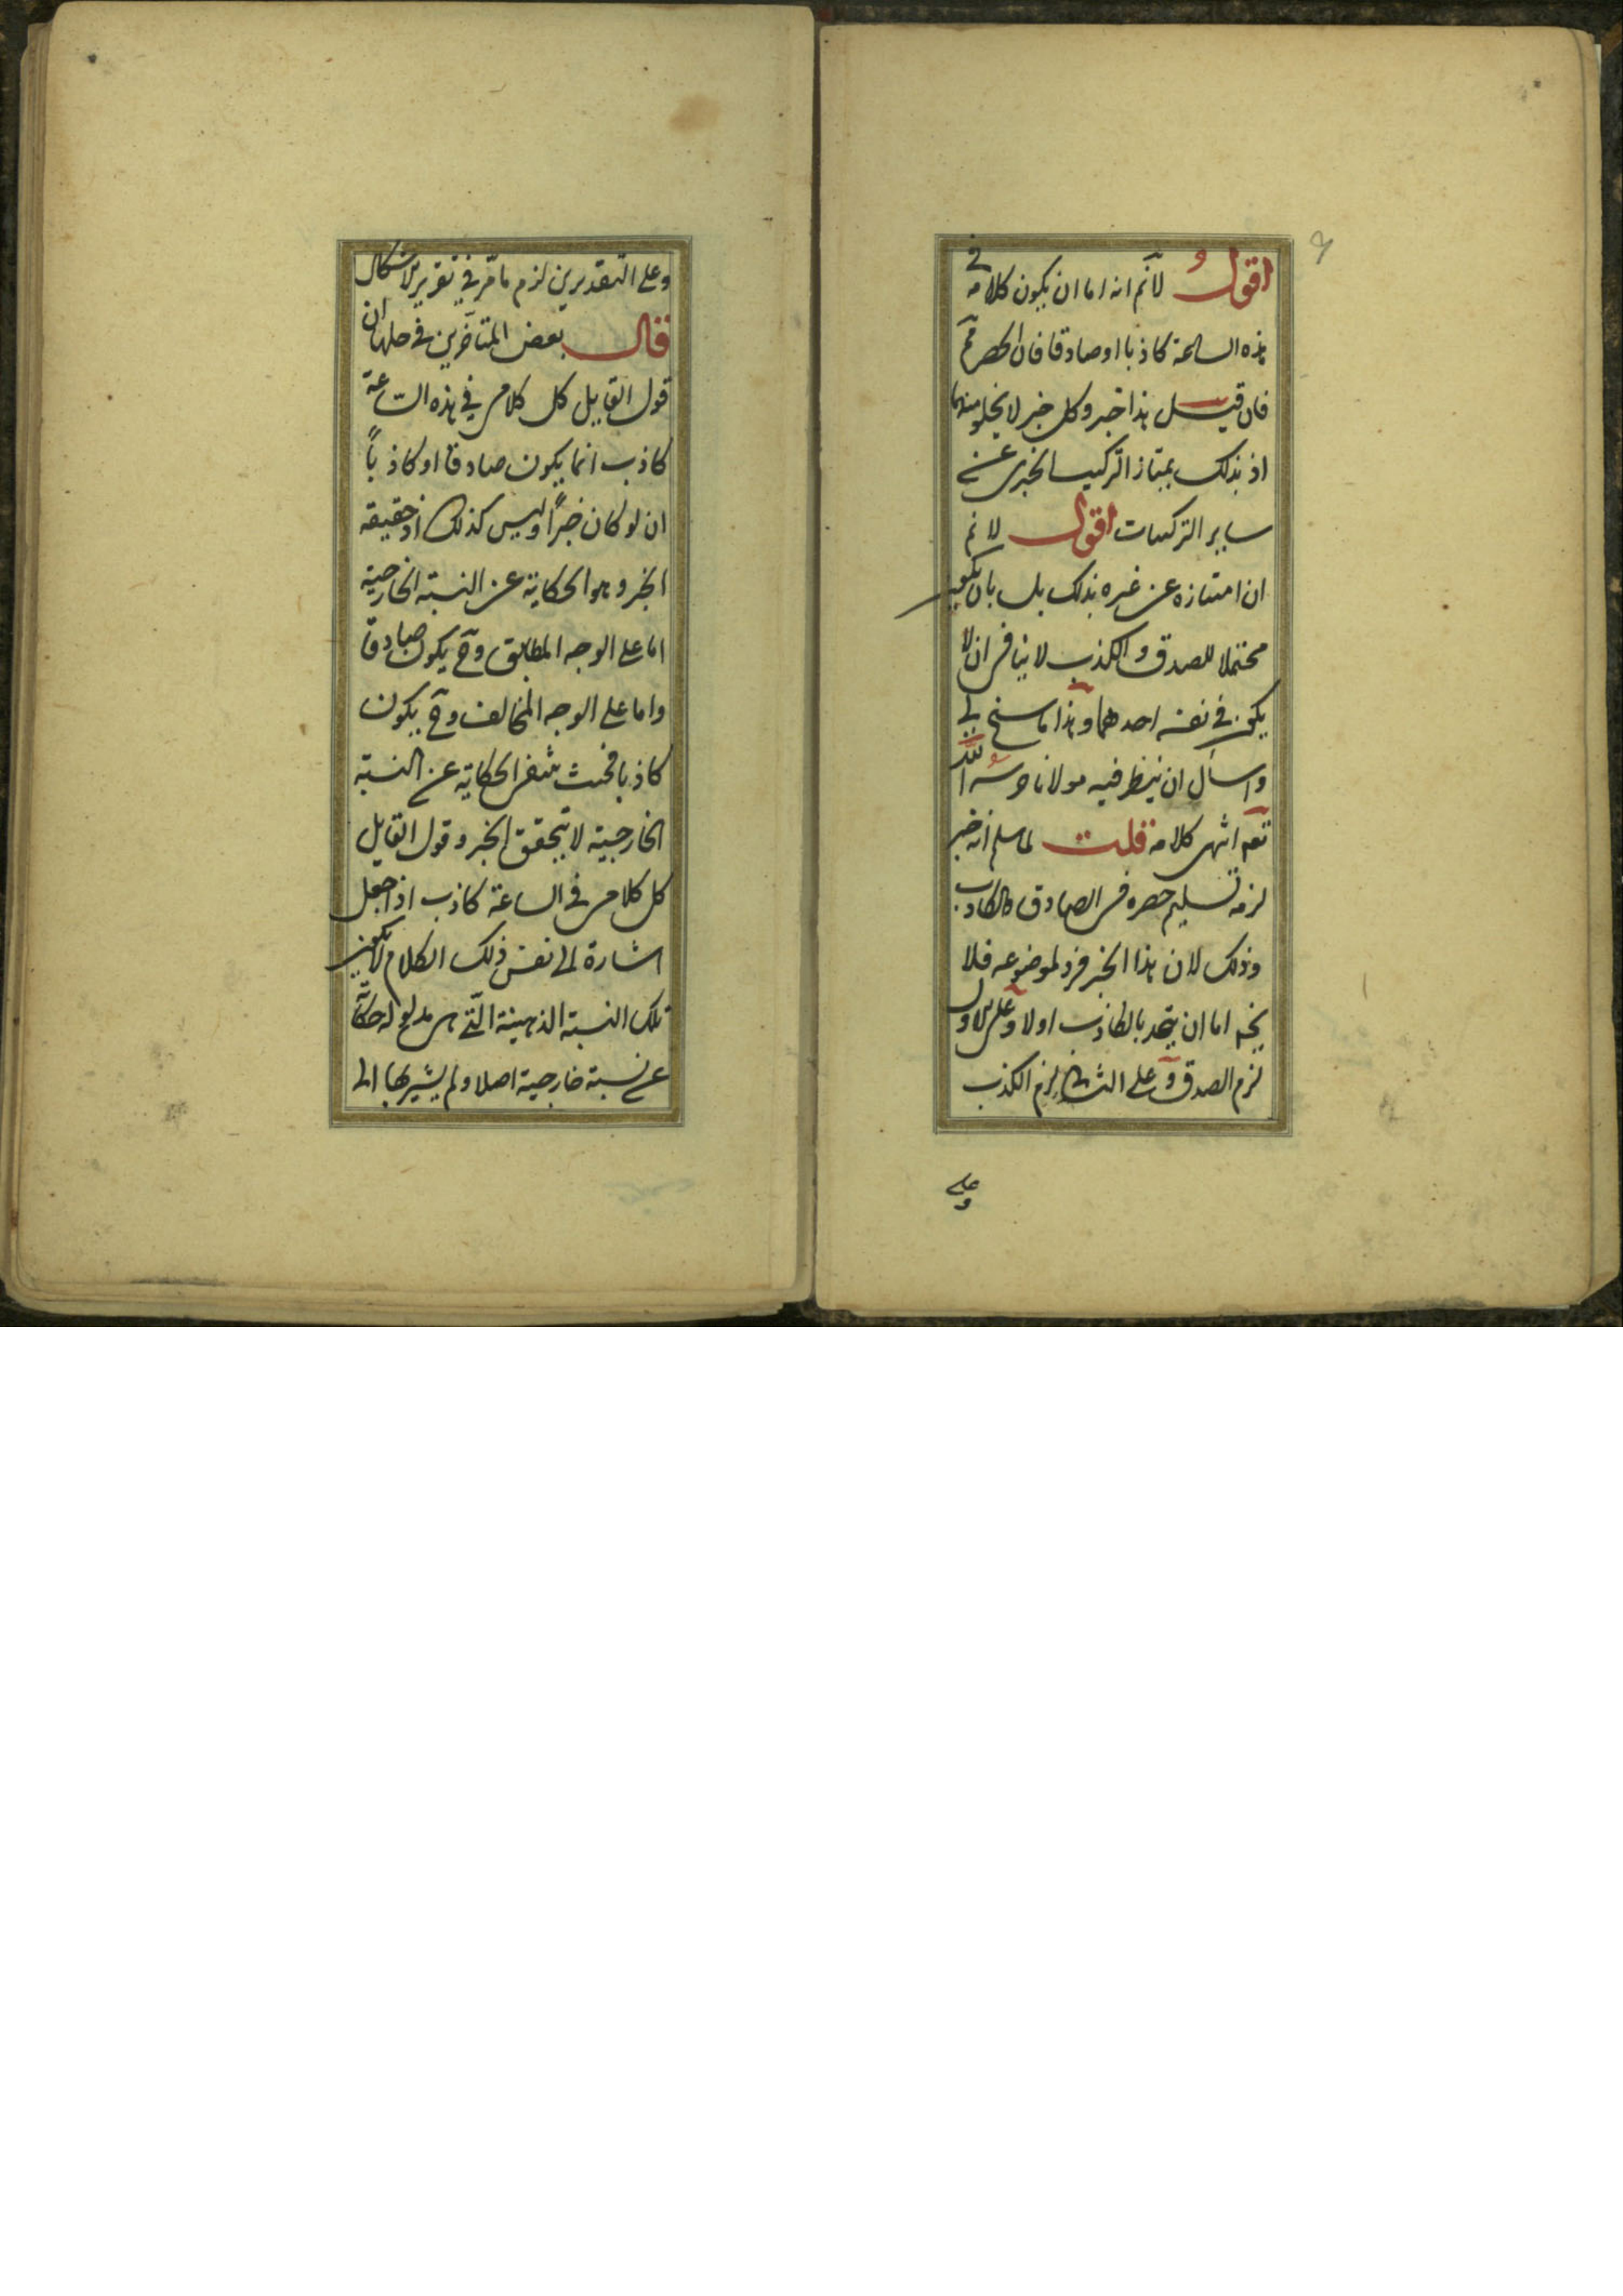 اقول لانم انه اما ان يكون كلامه في
هذه الساعة كاذبا او صادقا فان الحصر مم
فان قيل هذا خبر وكل خبر لا يخلو منهما
اذ بذلك يمتاز التركيب الخبرى عن
ساير التركيبات اقول لانم
ان امتيازه عن غيره بذلك بل بان يكون
محتملا للصدق والكذب لا ينافى ان لا
يكون في نفسه احدهما وهذا ما سنح لى
واسأل ان ينظر فيه مولانا حرسه الله
تعه انتهى كلامه قلت لما سلم انه خبر
لزمه تسليم حصره فى الصادق والكاذب
وذلك لان هذا الخبر فرد لموضوعه فلا
يخ اما ان يتحد بالكاذب اولا وعلى الاول
لزم الصدق وعلى الثانى لزم الكذب
وعلى
وعلى التقديرين لزم ما مر في تقرير الاشكال
قال بعض المتأخرين في حلها ان
قول القايل كل كلامى في هذه الساعة
كاذب انما يكون صادقا او كاذباً
ان لو كان خبراً وليس كذلك اذ حقيقه
الخبر وهو الحكاية عن النسبة الخارجية
اما على الوجه المطابق وح يكون صادقا
واما على الوجه المخالف وح يكون
كاذبا فحيث تنتفى الحكاية عن النسبة
الخارجية لا يتحقق الخبر وقول القايل
كل كلامى في الساعة كاذب اذا جعل
اشارة الى نفس ذلك الكلام لا يكون
تلك النسبة الذهنية التي هى مدلوله حكاية
عن نسبة خارجية اصلا ولم يشير بها الى